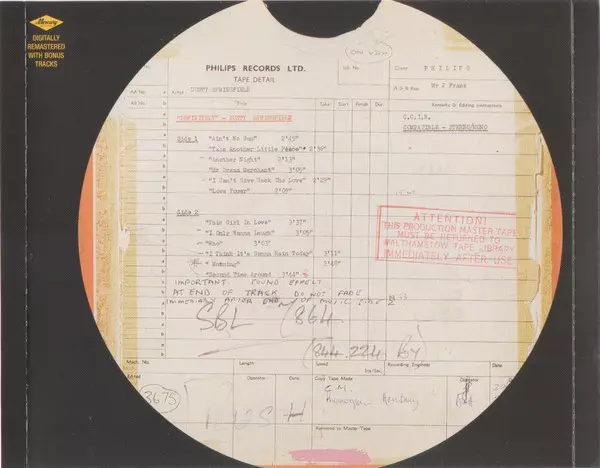 Mercury
DIGITALLY
REMASTERED
WITH BONUS
TRACKS
PHILIPS RECORDS LTD.
TAPE DETAIL
Job No.
Client PHILIPS
AA No.
Artist DUSTY SPRINGFIELD
Mr J Franz
AB No.
Title
Take Start Finish Dur
Remarks & Editing Instructions
"DEFINITELY" - DUSTY SPRINGFIELD
COMPATIBLE - STEREO/MONO
Side 1 "Ain't No Sun" 2'45"
"Take Another Little Piece" 2'39"
"Another Night" 2'13"
"Mr Dream Merchant" 3'05"
"I Can't Give Back The Love" 2'29"
"Love Power" 2'09"
Side 2
"This Girl In Love" 3'37"
"I Only Wanna Laugh" 3'05"
"Who" 3'03"
"I Think It's Gonna Rain Today" 3'11"
"Morning" 3'48"
"Second Time Around
ATTENTION!
THIS PRODUCTION MASTER TAPE
MUST BE RETURNED TO
WALTHAMSTOW TAPE LIBRARY
IMMEDIATELY AFTER USE
IMPORTANT. FOUND EFFECT
AT END OF TRACK DO NOT FADE
AFTER END OF MUSIC
SBL 7864
(844.224 BY)
Mach. No.
Length
Speed
Ins/Sec.
Recording Engineer
Date
Edited
Operator
Date
Copy Tape Made
Operator
3675
G.M.
Returned to Master Tape